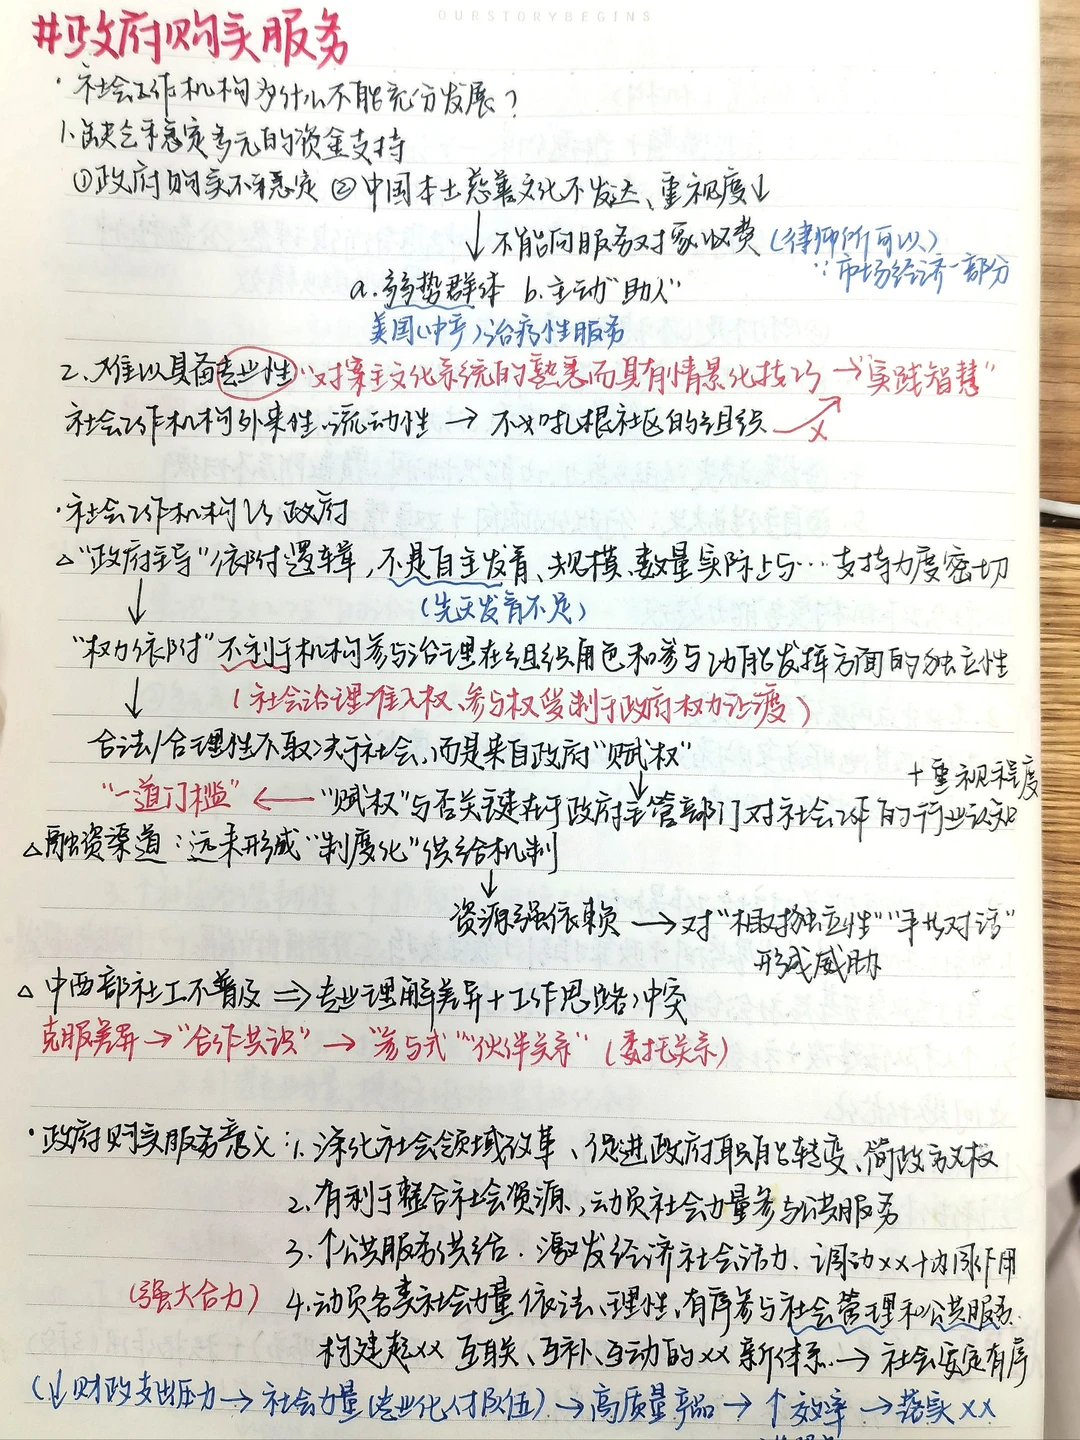 OURSTORYBEGINS
#政府购买服务
·社会工作机构为什么不能充分发展？
1.缺乏稳定多元的资金支持
①政府购买不稳定 ②中国本土慈善文化不发达、重视度↓
↓不能向服务对象收费(律师所可以)
∵市场经济一部分
a.弱势群体 b.主动"助人"
美国(中产)治疗性服务
2.难以具备专业性"对案主文化系统的熟悉而具有情景化技巧→"实践智慧"
社会工作机构外来性、流动性→不如扎根社区的组织
·社会工作机构vs政府
△"政府主导"依附逻辑,不是自主发育、规模、数量实际上与…支持力度密切
↓(先天发育不足)
"权力依附"不利于机构参与治理在组织角色和参与功能发挥方面的独立性
↓(社会治理准入权、参与权受制于政府权力让渡)
合法/合理性不取决于社会,而是来自政府"赋权"
+重视程度
"一道门槛"←"赋权"与否关键在于政府主管部门对社会工作的行业认知
△融资渠道:远未形成"制度化"供给机制
↓
资源强依赖→对"相对独立性""平等对话"
形成威胁
△中西部社工不普及⇒专业理解差异+工作思路冲突
克服差异→"合作共识"→"参与式""伙伴关系"(委托关系)
·政府购买服务意义:1.深化社会领域改革、促进政府职能转变、简政放权
2.有利于整合社会资源,动员社会力量参与公共服务
3.↑公共服务供给.激发经济社会活力、调动xx+协同作用
(强大合力) 4.动员各类社会力量依法、理性、有序参与社会管理和公共服务.
构建起xx互联、互补、互动的xx新体系.→社会安定有序
(↓财政支出压力→社会力量(专业化人才队伍)→高质量产品→↑效率→落实xx